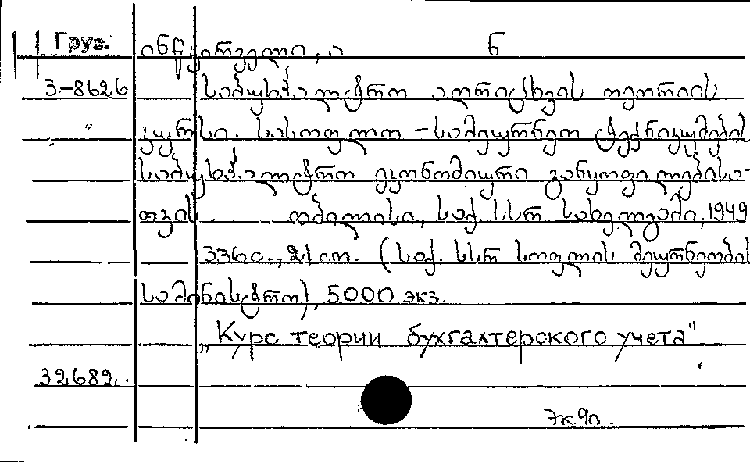 Груз. ინწკირველი, ა Б
3-8626 საბუხჰალტრო აღრიცხვის თეორიის
" კურსი. სასოფლო-სამეურნეო ტექნიკუმების
საბუხჰალტრო ეკონომიური განყოფილებისა-
თვის. თბილისი, საქ. სსრ სახელგამი, 1949
336 с., 21 см. (საქ. სსრ სოფლის მეურნეობის
სამინისტრო), 5000 экз.
„Курс теории бухгалтерского учета"
32.682.